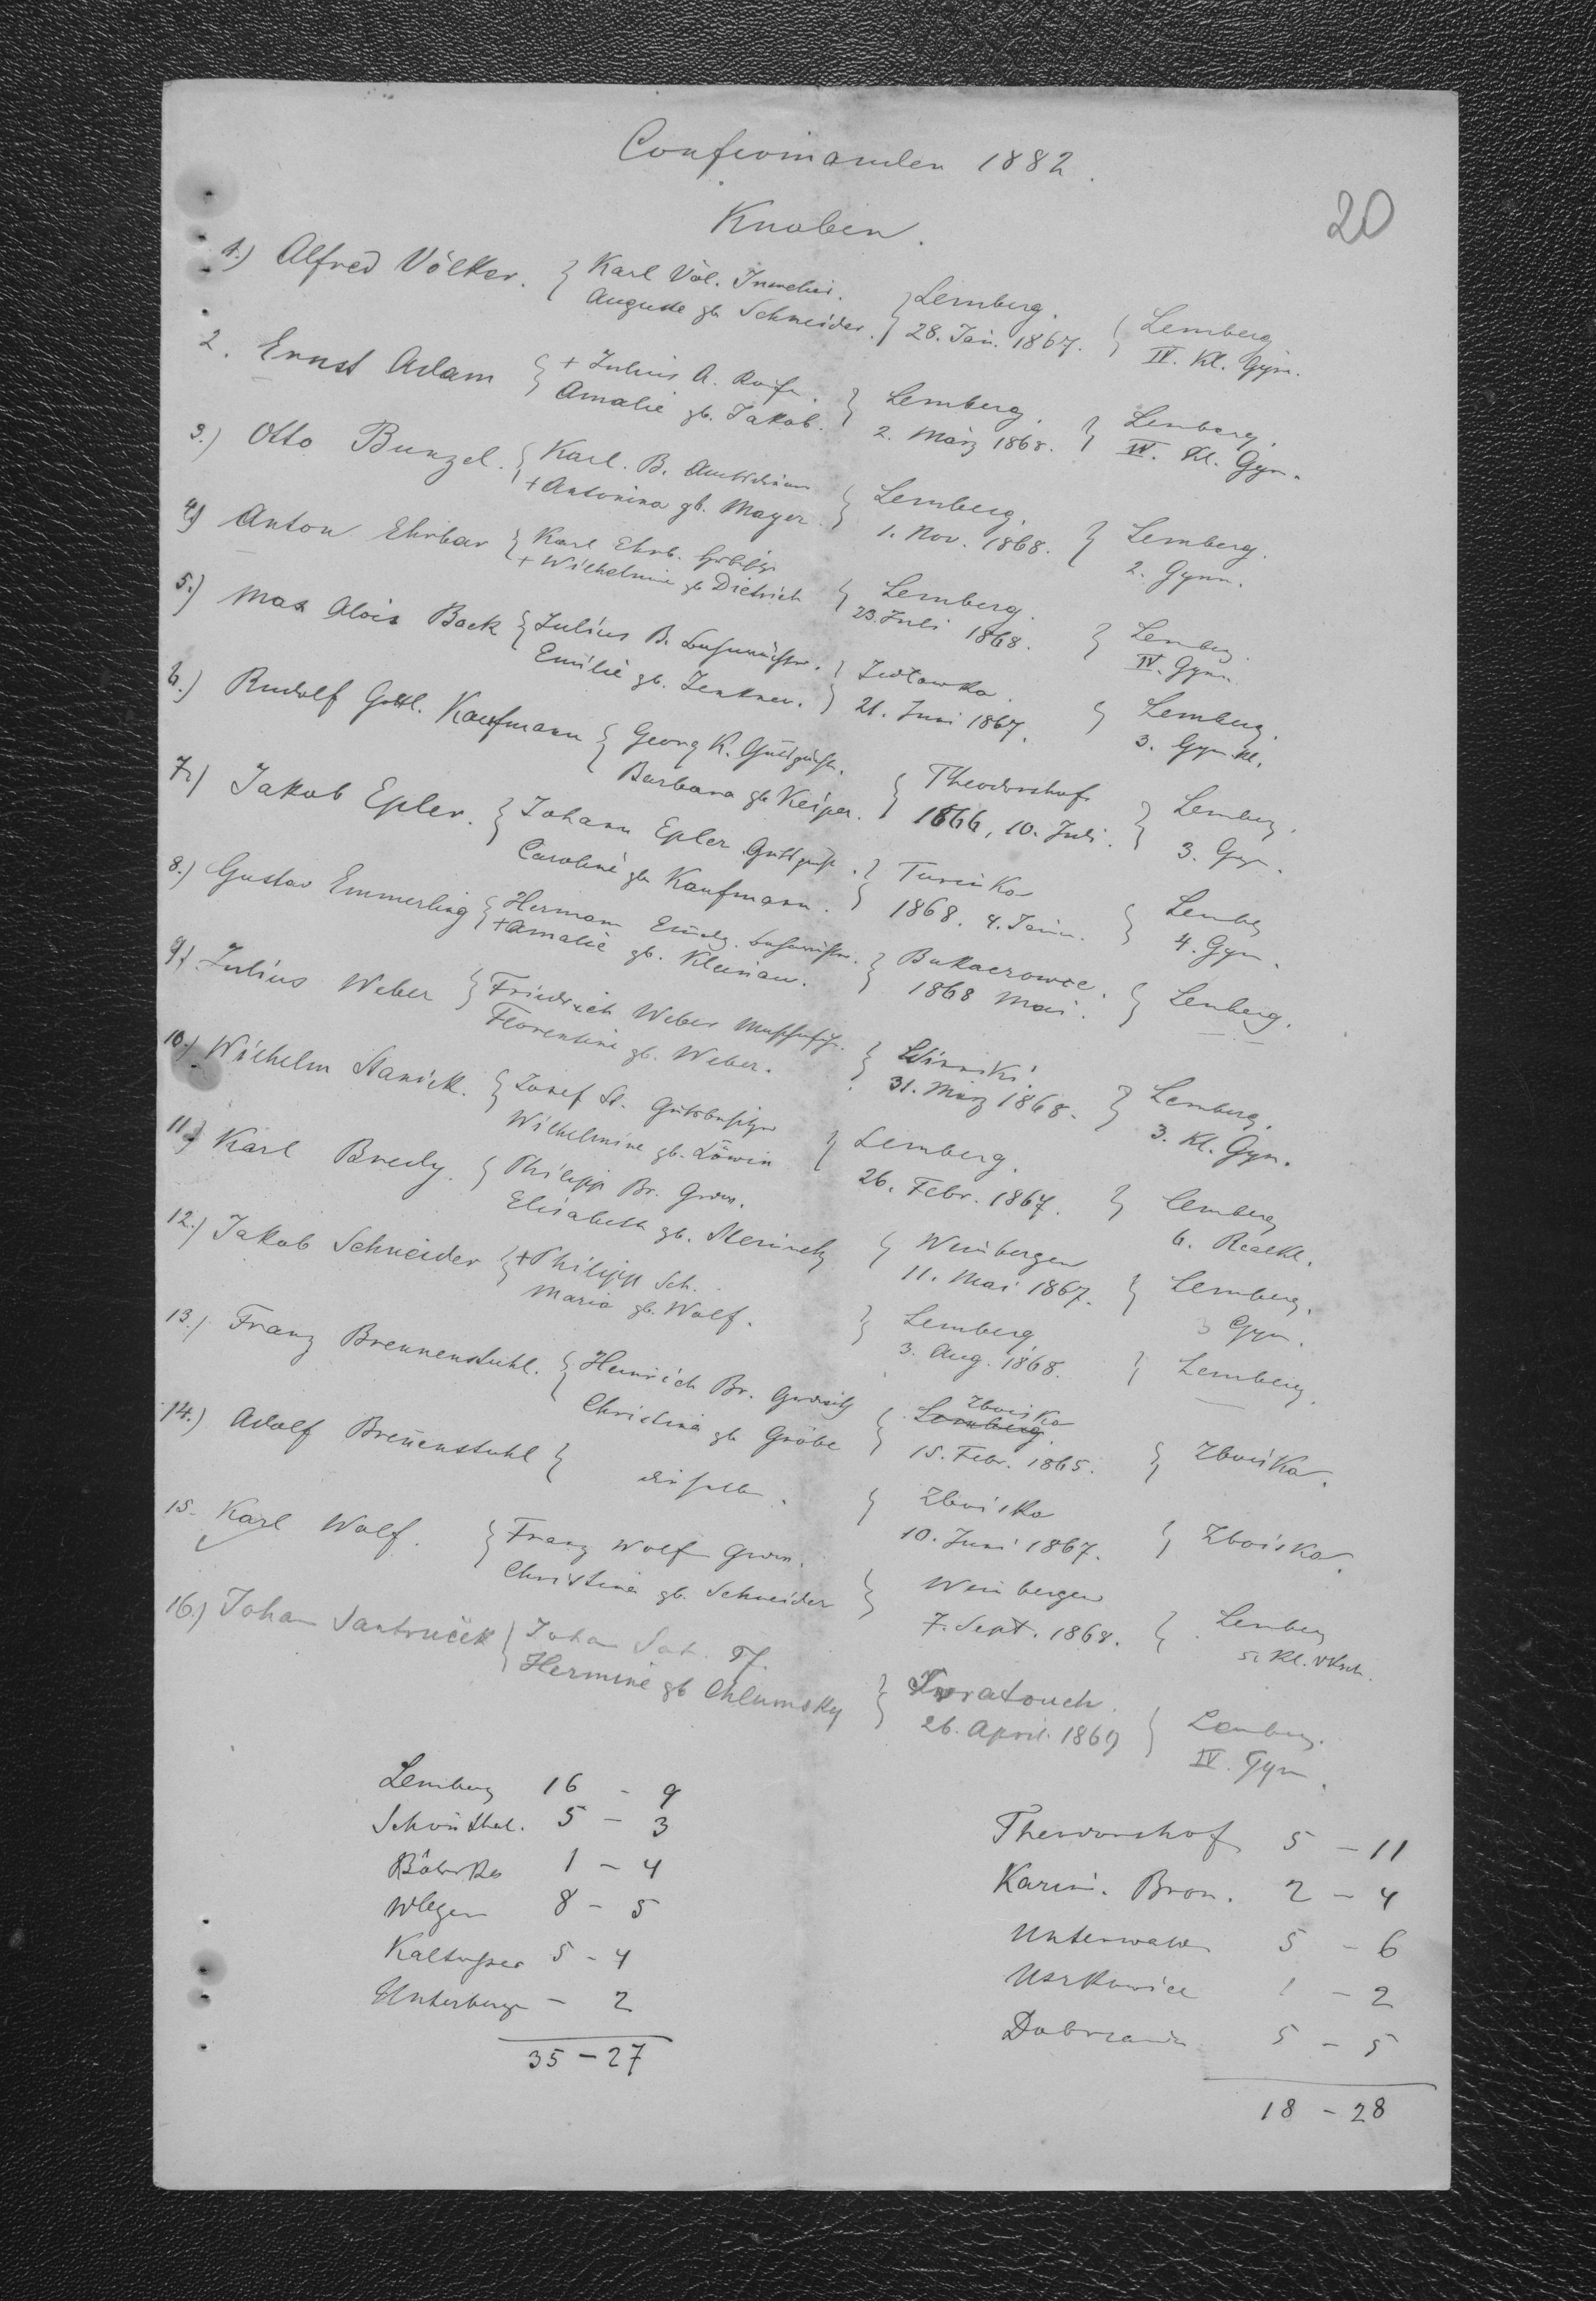 Confirmanden 1882.
20
Knaben.
1.) Alfred Völker. { Karl Völ. Juwelier. } Lemberg. { Lemberg
Auguste gb Schneider. 28. Jän. 1867. IV. Kl. Gym.
2. Ernst Adam { + Julius A. } Lemberg. } Lemberg.
Amalie gb. Jakob. 2. März 1868. IV. Kl. Gym.
3.) Otto Bunzel. { Karl. B. } Lemberg. } Lemberg.
+ Antonina gb. Mayer. 1. Nov. 1868. 2. Gymn.
4.) Anton Ehrbar { Karl Ehrb. } Lemberg. } Lemberg.
+ Wilhelmine gb Dietrich 23. Juli 1868. IV. Gymn.
5.) Max Alois Bock { Julius B. } } Lemberg.
Emilie gb. Zenkner. 21. Juni 1867. 3. Gym. Kl.
6.) Rudolf Gottl. Kaufmann { Georg K. } Theodorshof } Lemberg.
Barbara gb Keiper. 1866, 10. Juli. 3. Gym.
7.) Jakob Epler. { Johann Epler } Turinka } Lemberg
Caroline gb Kaufmann. 1868. 4. Jänn. 4. Gym.
8.) Gustav Emmerling { Herman } } Lemberg.
+ Amalie gb. Kleinau. 1868 Mai.
9.) Julius Weber { Friedrich Weber } Winniki. } Lemberg.
Florentine gb. Weber. 31. März 1868. 3. Kl. Gym.
10.) Wilhelm Stanick. { Josef St. Gutsbesitzer } Lemberg. } Lemberg
Wilhelmine gb. Löwin 26. Febr. 1867. 6. Realkl.
11.) Karl Bredy. { Philipp Br. Grdw. } Weinbergen } Lemberg.
Elisabeth gb. 11. Mai 1867. 3 Gym.
12.) Jakob Schneider { + Philipp Sch. } Lemberg } Lemberg.
Maria gb. Wolf. 3. Aug. 1868.
13.) Franz Brennenstuhl. { Heinrich Br. } Lemberg. Zboiska } Zboiska.
Christina gb Gröbe 15. Febr. 1865.
14.) Adolf Breñenstuhl } dieselben. } Zboiska } Zboiska.
10. Juni 1867.
15. Karl Wolf. } Franz Wolf Grdw. } Weinbergen } Lemberg
Christina gb. Schneider 7. Sept. 1868. 5. Kl. Vksch.
16.) Johan Santruček } Johan Sat. Pf. } Kratouch. } Lemberg.
Hermine gb Chlumsky 26. April. 1869 IV. Gym.
Lemberg 16 - 9
Schönthal. 5 - 3
1 - 4
8 - 5
Kaltwasser 5 - 4
Unterbergn - 2
35 - 27
Theodorshof 5 - 11
Kamin. Bron. 2 - 4
Unterwalden 5 - 6
1 - 2
5 - 5
18 - 28